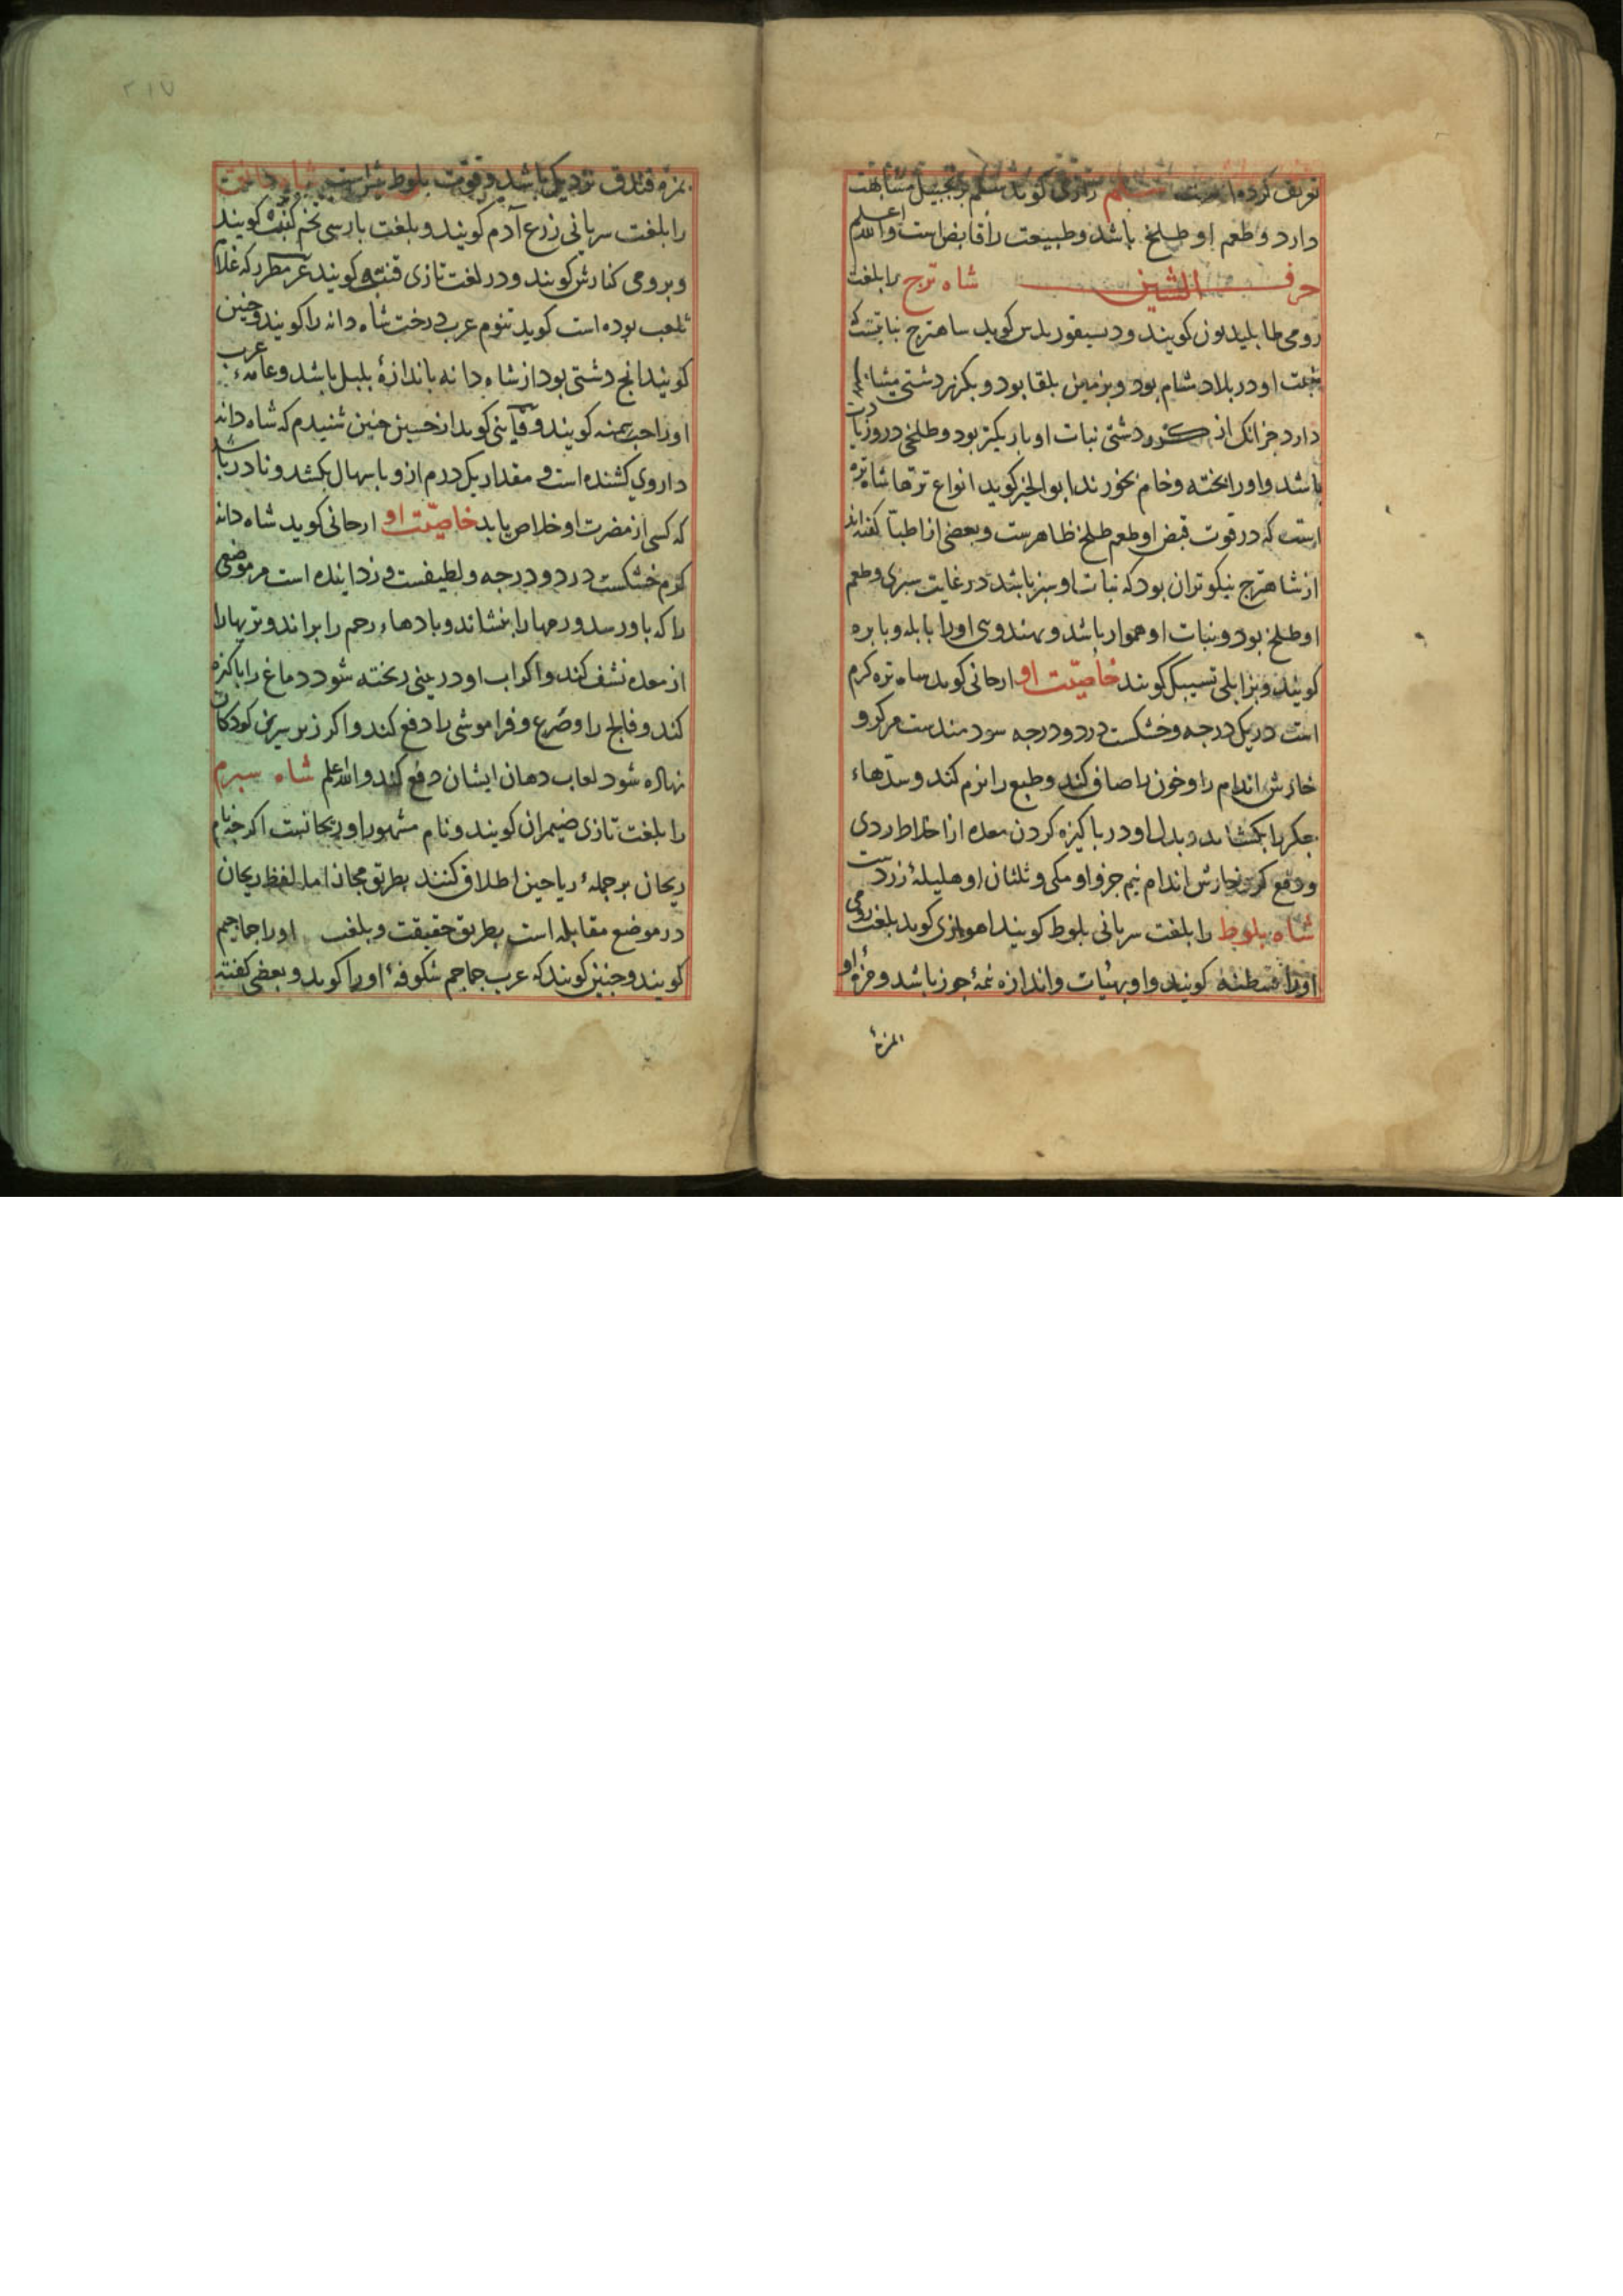 تعریف کرده است شلم رازی کوید شلم بزنجبیل مشابهت
دارد و طعم او طلخ باشد و طبیعت را قابض است والله اعلم
حرف الشین شاه ترج را بلغت
رومی کویند و دیسقوریدس کوید ساهترج نباتیست که
او در بلاد شام بود و بزمین بلقا بود و بکزر دشتی مشابهت
دارد جز انک از کزر دشتی نبات او باریکتر بود و طلخی درو زیادت
باشد و او را بخته و خام بخورند ابو الخیر کوید انواع ترها شاه تره
است که در قوت قبض او طعم طلخ ظاهرست و بعضی از اطبا کفته اند
از شاهترج نیکوتر ان بود که نبات او سبز باشد در غایت سبزی و طعم
او طلخ بود و نبات او هموار باشد و بهندوی او را بابله و بابره
کویند و بزابلی کویند خاصیت او ارجانی کوید ساه تره کرم
است در یک درجه و خشکست در دو درجه سودمندست مر کر و
خارش اندام را و خون را صافی کند و طبع را نرم کند و سدهاء
جکر را بکشاید و بدل او در باکیزه کردن معده از اخلاط ردی
و دفع کر و خارش اندام نیم جزو او مکی و ثلثان او هلیلهٔ زردست
شاه بلوط را بلغت سریانی بلوط کویند اهوازی کوید بلغت رومی
او را قسطنه کویند و او بهیأت و اندازه نیمهٔ جوز باشد و مزهٔ او
المزهٔ
٢١٧
بمزه فندق نزدیک باشد و قوت بلوط بیش است شاه دانه
را بلغت سریانی زرع آدم کویند و بلغت بارسی تخم کنب کویند
و برومی کنارش کویند و در لغت تازی قنبه کویند که غلام
ثعلب بوده است کوید تنوم عرب درخت شاه دانه را کویند و چنین
کویند انج دشتی بود از شاه دانه باندازهٔ بلبل باشد و عامهٔ عرب
او را حب سمنه کویند و کوید از حسین چنین شنیدم که شاه دانه
داروی کشنده است و مقدار یک درم ازو باسهال بکشد و نادر باشد
که کسی از مضرت او خلاص یابد خاصیت او ارجانی کوید شاه دانه
کرم خشکست در دو درجه و لطیفست و زداینده است مر موضعی
را که باو رسد و رمها را بنشاند و بادهاء رحم را براند و تریها را
از معده نشف کند و اکر اب او در بینی ریخته شود دماغ را باکیزه
کند و فالج را و صرع و فراموشی را دفع کند و اکر زیر سر کودکان
نهاده شود لعاب دهان ایشان دفع کند والله اعلم شاه سبرم
را بلغت تازی ضیمران کویند و نام مشهور او ریحانست اکرچه نام
ریحان بر جملهٔ ریاحین اطلاق کنند بطریق مجاز اما لفظ ریحان
در موضع مقابله است بطریق حقیقت و بلغت او را جماجم
کویند و چنین کویند که عرب جماجم شکوفهٔ او را کوید و بعضی کفته